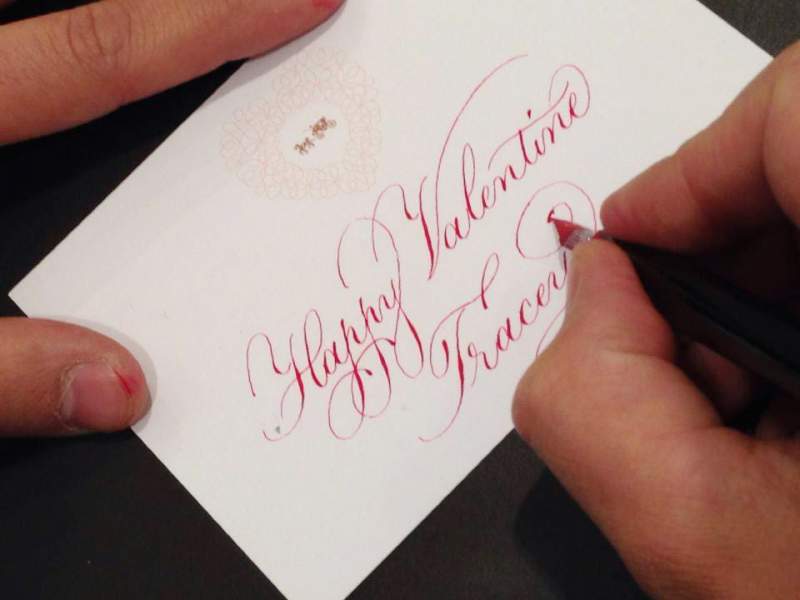 Happy
Valentine
Tracey